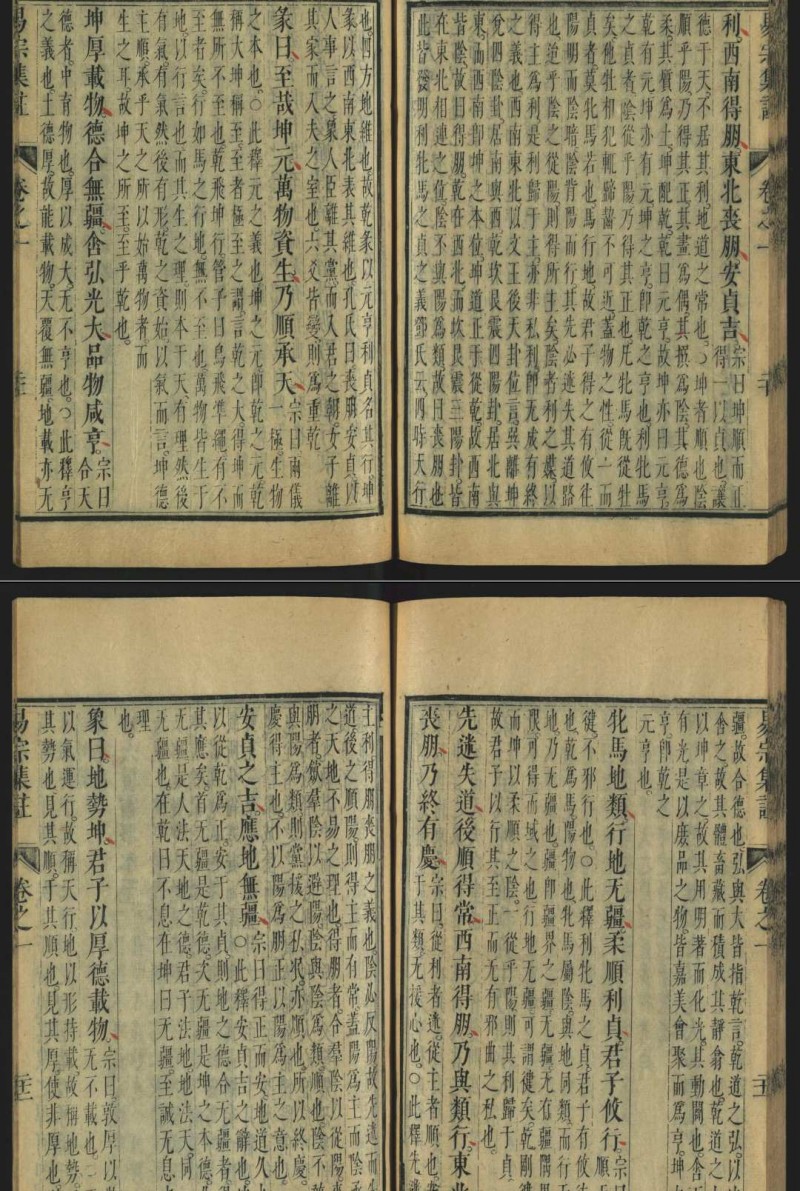 利西南得朋東北喪朋安貞吉宗曰坤順而正得一以貞也議
德于天不居其利地道之常也○坤者順也陰
順乎陽乃得其正其畫爲偶其撰爲陰其德爲
柔其類爲土坤配乾乾曰元亨故坤亦曰元亨
乾有元坤亦有元坤之亨卽乾之亨也利牝馬
之貞者陰從乎陽乃得其正也凡牝馬旣從牡
矣他牡相犯輒蹄齧不可近蓋物之性從一而
貞者莫牝馬若也馬行地故君子得之有攸往
陽明而陰暗陰背陽而行其先必迷失其道路
也迨乎陰之從陽則得所主矣陰者利之媒以
得主爲利是利歸于主亦非私利卽无成有終
之義也西南東北以文王後天卦位言巽離坤
兌四陰卦居南與西乾坎艮震四陽卦居北與
東而西南卽坤之本位坤道正于從乾故西南
皆陰故曰得朋乾在西北而坎艮震三陽卦皆
在東北相連之位陰不與陽爲類故曰喪朋也
此皆發明利牝馬之貞之義鄧氏云四時天行
也四方地維也故乾彖以元亨利貞名其行坤
彖以西南東北表其維也孔氏曰喪朋安貞以
人事言之象人臣離其黨而入君之朝女子離
其家而入夫之室也六爻皆變則爲重乾
彖曰至哉坤元萬物資生乃順承天宗曰兩儀一極生物
之本也○此釋元之義也坤之元卽乾之元乾
稱大坤稱至至者極至之謂言乾之大得坤而
無所不至也乾飛坤行管予曰鳥飛準繩有不
至者矣行如馬之行地無不至也萬物皆生于
地以行言也而其生之理則本于天有理然後
有氣有氣然後有形乾之資始以氣而言坤德
主順承乎天之所以始萬物者而
生之耳故坤之所至至乎乾也
坤厚載物德合無疆含弘光大品物咸亨宗曰合天
德者中育物也厚以成大无不亨也○此釋亨
之義也土德厚故能載物天覆無疆地載亦无
易宗集註 卷之一
疆故合德也弘與大皆指乾言乾道之弘以
含之故其體畜藏而積成其靜翕也乾道之
以坤章之故其用明著而化光其動闢也含
有光是以庶品之物皆嘉美會聚而爲亨坤
亨卽乾之
元亨也
牝馬地類行地无疆柔順利貞君子攸行宗曰順
徤不邪行也○此釋利牝馬之貞君子有攸
也乾爲馬陽物也牝馬屬陰與地同類而行
地乃无疆也疆卽疆界之疆無疆无在疆閡
限可得而域之也行地无疆可謂徤矣乾剛
而坤以柔順之陰一從乎陽則其利歸于貞
故君子以行其至正而无有邪曲之私也
先迷失道後順得常西南得朋乃與類行東北
喪朋乃終有慶宗曰從利者迷從主者順也
于其類无援心也○此釋先迷
主利得朋喪朋之義也陰必反陽故先迷而
道後之順陽則得主而有常蓋陽爲主而陰
之天地不易之理也得朋者合羣陰以從陽
朋者獄羣陰以避陽陰與陰爲類順也陰不
與陽爲類則黨援之私泯亦順也所以終
慶得主也不以陽爲朋正以陽爲主之意也
安貞之吉應地無疆宗曰得正而安地道久
○此釋安貞吉之辭也
以從乾爲正安于其貞則地之德合无疆者
其應矣首无疆是乾德夫无疆是坤之本德
无疆是人法天地之德君子法地地法天同
无疆也在乾曰不息在坤曰无疆至誠无息
理
也
象曰地勢坤君子以厚德載物宗曰敦厚以
无不載也
以氣運行故稱天行地以形持載故稱地勢
其勢也見其順于其順也見其厚使非厚也
易宗集註 卷之一